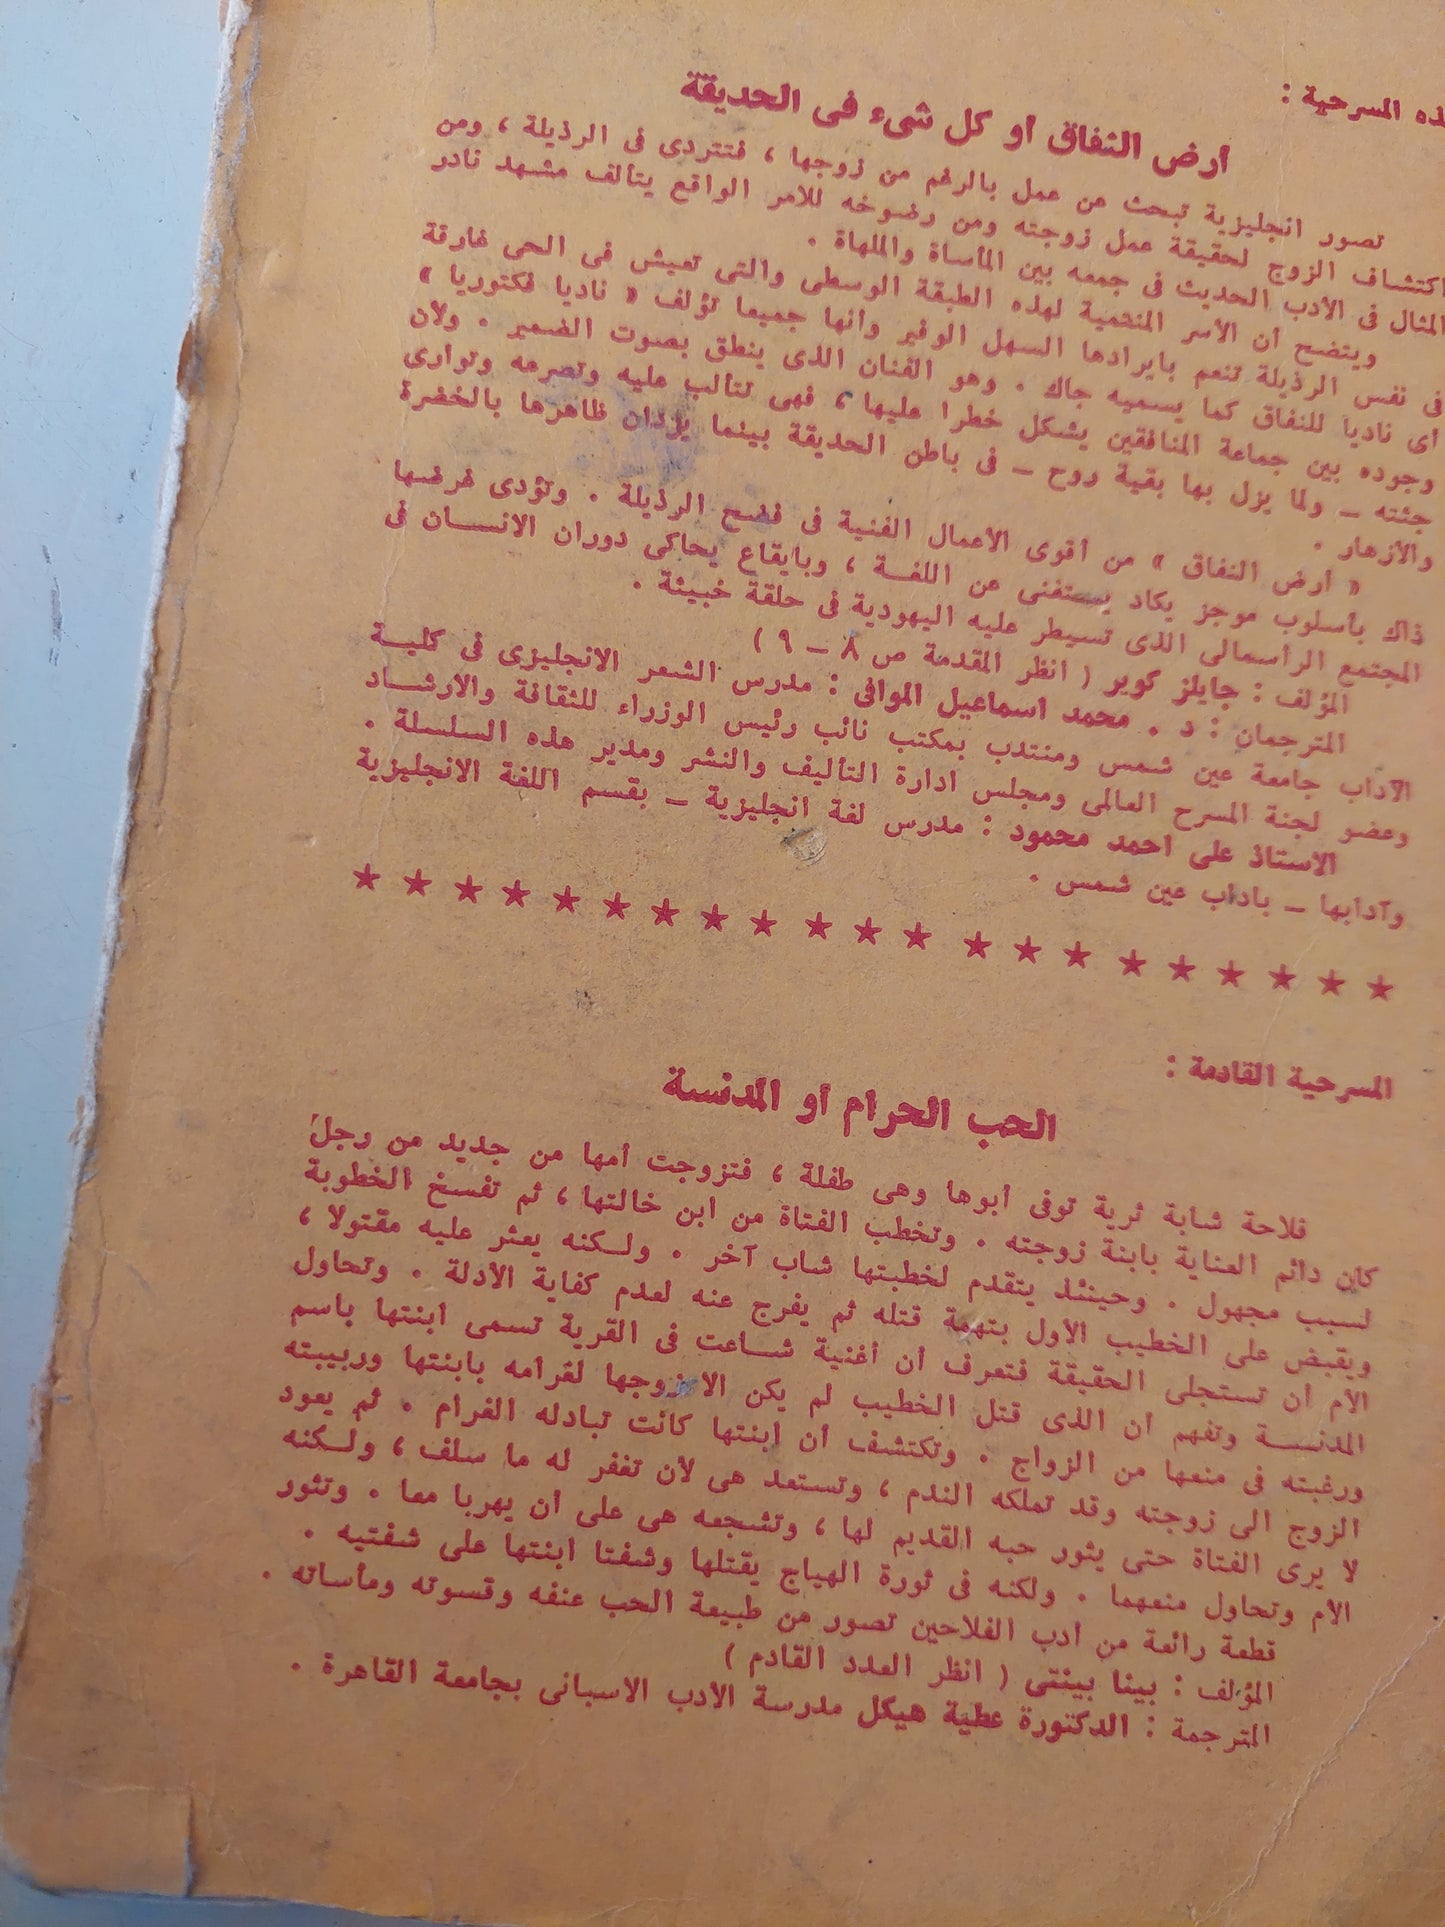 هذه المسرحية :
أرض النفاق أو كل شىء فى الحديقة
تصور انجليزية تبحث عن عمل بالرغم من زوجها ، فتتردى فى الرذيلة ، ومن
اكتشاف الزوج لحقيقة عمل زوجته ومن رضوخه للأمر الواقع يتألف مشهد نادر
المثال فى الأدب الحديث فى جمعه بين المأساة والملهاة .
ويتضح أن الأسر المنتمية لهذه الطبقة الوسطى والتى تعيش فى الحى غارقة
فى نفس الرذيلة تنعم بايرادها السهل الوفير وأنها جميعا تؤلف « ناديا فكتوريا »
أى ناديا للنفاق كما يسميه جاك . وهو الفنان الذى ينطق بصوت الضمير . ولأن
وجوده بين جماعة المنافقين يشكل خطرا عليها ، فهى تتألب عليه وتصرعه وتوارى
جثته ـ ولما يزل بها بقية روح ـ فى باطن الحديقة بينما يزدان ظاهرها بالخضرة
والأزهار .
« أرض النفاق » من أقوى الأعمال الفنية فى فضح الرذيلة . وتؤدى غرضها
ذاك بأسلوب موجز يكاد يستغنى عن اللغـة ، وبايقاع يحاكى دوران الانسـان فى
المجتمع الرأسمالى الذى تسيطر عليه اليهودية فى حلقة خبيثة .
المؤلف : جايلز كوبر ( انظر المقدمة ص ٨ ـ ٩ )
المترجمان : د . محمد اسماعيل الموافى : مدرس الشعر الانجليزى فى كليـة
الآداب جامعة عين شمس ومنتدب بمكتب نائب رئيس الوزراء للثقافة والارشـاد
وعضو لجنة المسرح العالمى ومجلس ادارة التأليف والنشر ومدير هذه السلسلة .
الأستاذ على أحمد محمود : مدرس لغة انجليزية ـ بقسم اللغة الانجليزية
وآدابها ـ بآداب عين شمس .
★ ★ ★ ★ ★ ★ ★ ★ ★ ★ ★ ★ ★ ★ ★ ★ ★ ★ ★ ★ ★
المسرحية القادمة :
الحب الحرام أو المدنسة
فلاحة شابة ثرية توفى أبوها وهى طفلة ، فتزوجت أمها من جديد من رجل
كان دائم العناية بابنة زوجته . وتخطب الفتاة من ابن خالتها ، ثم تفسخ الخطوبة
لسبب مجهول . وحينئذ يتقدم لخطبتها شاب آخر . ولـكنه يعثر عليه مقتولا ،
ويقبض على الخطيب الأول بتهمة قتله ثم يفرج عنه لعدم كفاية الأدلة . وتحاول
الأم أن تستجلى الحقيقة فتعرف أن أغنية شـاعت فى القرية تسمى ابنتها باسم
المدنسـة وتفهم أن الذى قتل الخطيب لم يكن الا زوجها لغرامه بابنتها وربيبته
ورغبته فى منعها من الزواج . وتكتشف أن ابنتها كانت تبادله الغرام . ثم يعود
الزوج الى زوجته وقد تملكه الندم ، وتستعد هى لأن تغفر له ما سلف ، ولـكنه
لا يرى الفتاة حتى يثور حبه القديم لها ، وتشجعه هى على أن يهربا معا . وتثور
الأم وتحاول منعهما . ولكنه فى ثورة الهياج يقتلها وشفتا ابنتها على شفتيه .
قطعة رائعة من أدب الفلاحين تصور من طبيعة الحب عنفه وقسوته ومأساته .
المؤلف : بينا بينتى ( انظر العدد القادم )
المترجمة : الدكتورة عطية هيكل مدرسة الأدب الاسبانى بجامعة القاهرة .